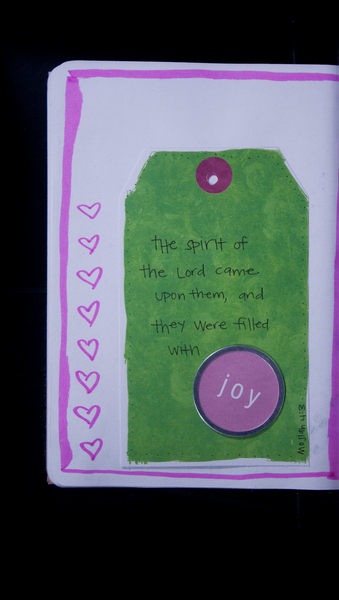 the spirit of
the Lord came
upon them, and
they were filled
with
joy
Mosiah 4:3